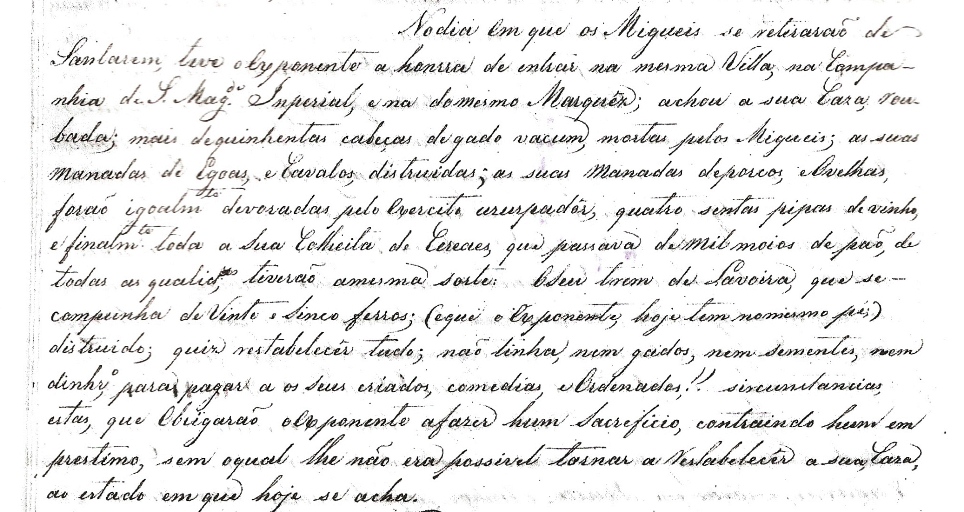 No dia em que os Migueis se retirarão de
Santarem, teve o Exponente a honrra de entrar na mesma Villa, na Compa-
nhia de S. Mag.de Inperial, e na do mesmo Marquêz; achou a sua Caza, rou-
bada; mais de quinhentas cabeças de gado vacum, mortas pelos Migueis; as suas
manadas de Egoas, e Cavalos, distruidas; as suas manadas de porcos, e Ovelhas,
forão igoalm.te devoradas pelo Exercito uzurpadôr, quatro sentas pipas de vinho,
e finalm.te toda a Sua Colheita de Cereaes, que passava de mil moios de pão, de
todas as qualid.es, tiverão a mesma sorte: O seu trem de Lavoira, que se-
compunha de Vinte e Sinco ferros; (e que o Exponente, hoje tem no mesmo pé;)
distruido; quiz restabelecêr tudo; não tinha, nem gados, nem sementes, nem
dinhr.o para pagar a os seus criados, comedias, e Ordenados!! sircunstancias,
estas, que Obrigarão o Exponente a fazer hum Sacreficio, contraindo hum em
prestimo, sem o qual lhe não era possivel tornar a restabelecêr a sua Caza,
ao estado em que hoje se acha.